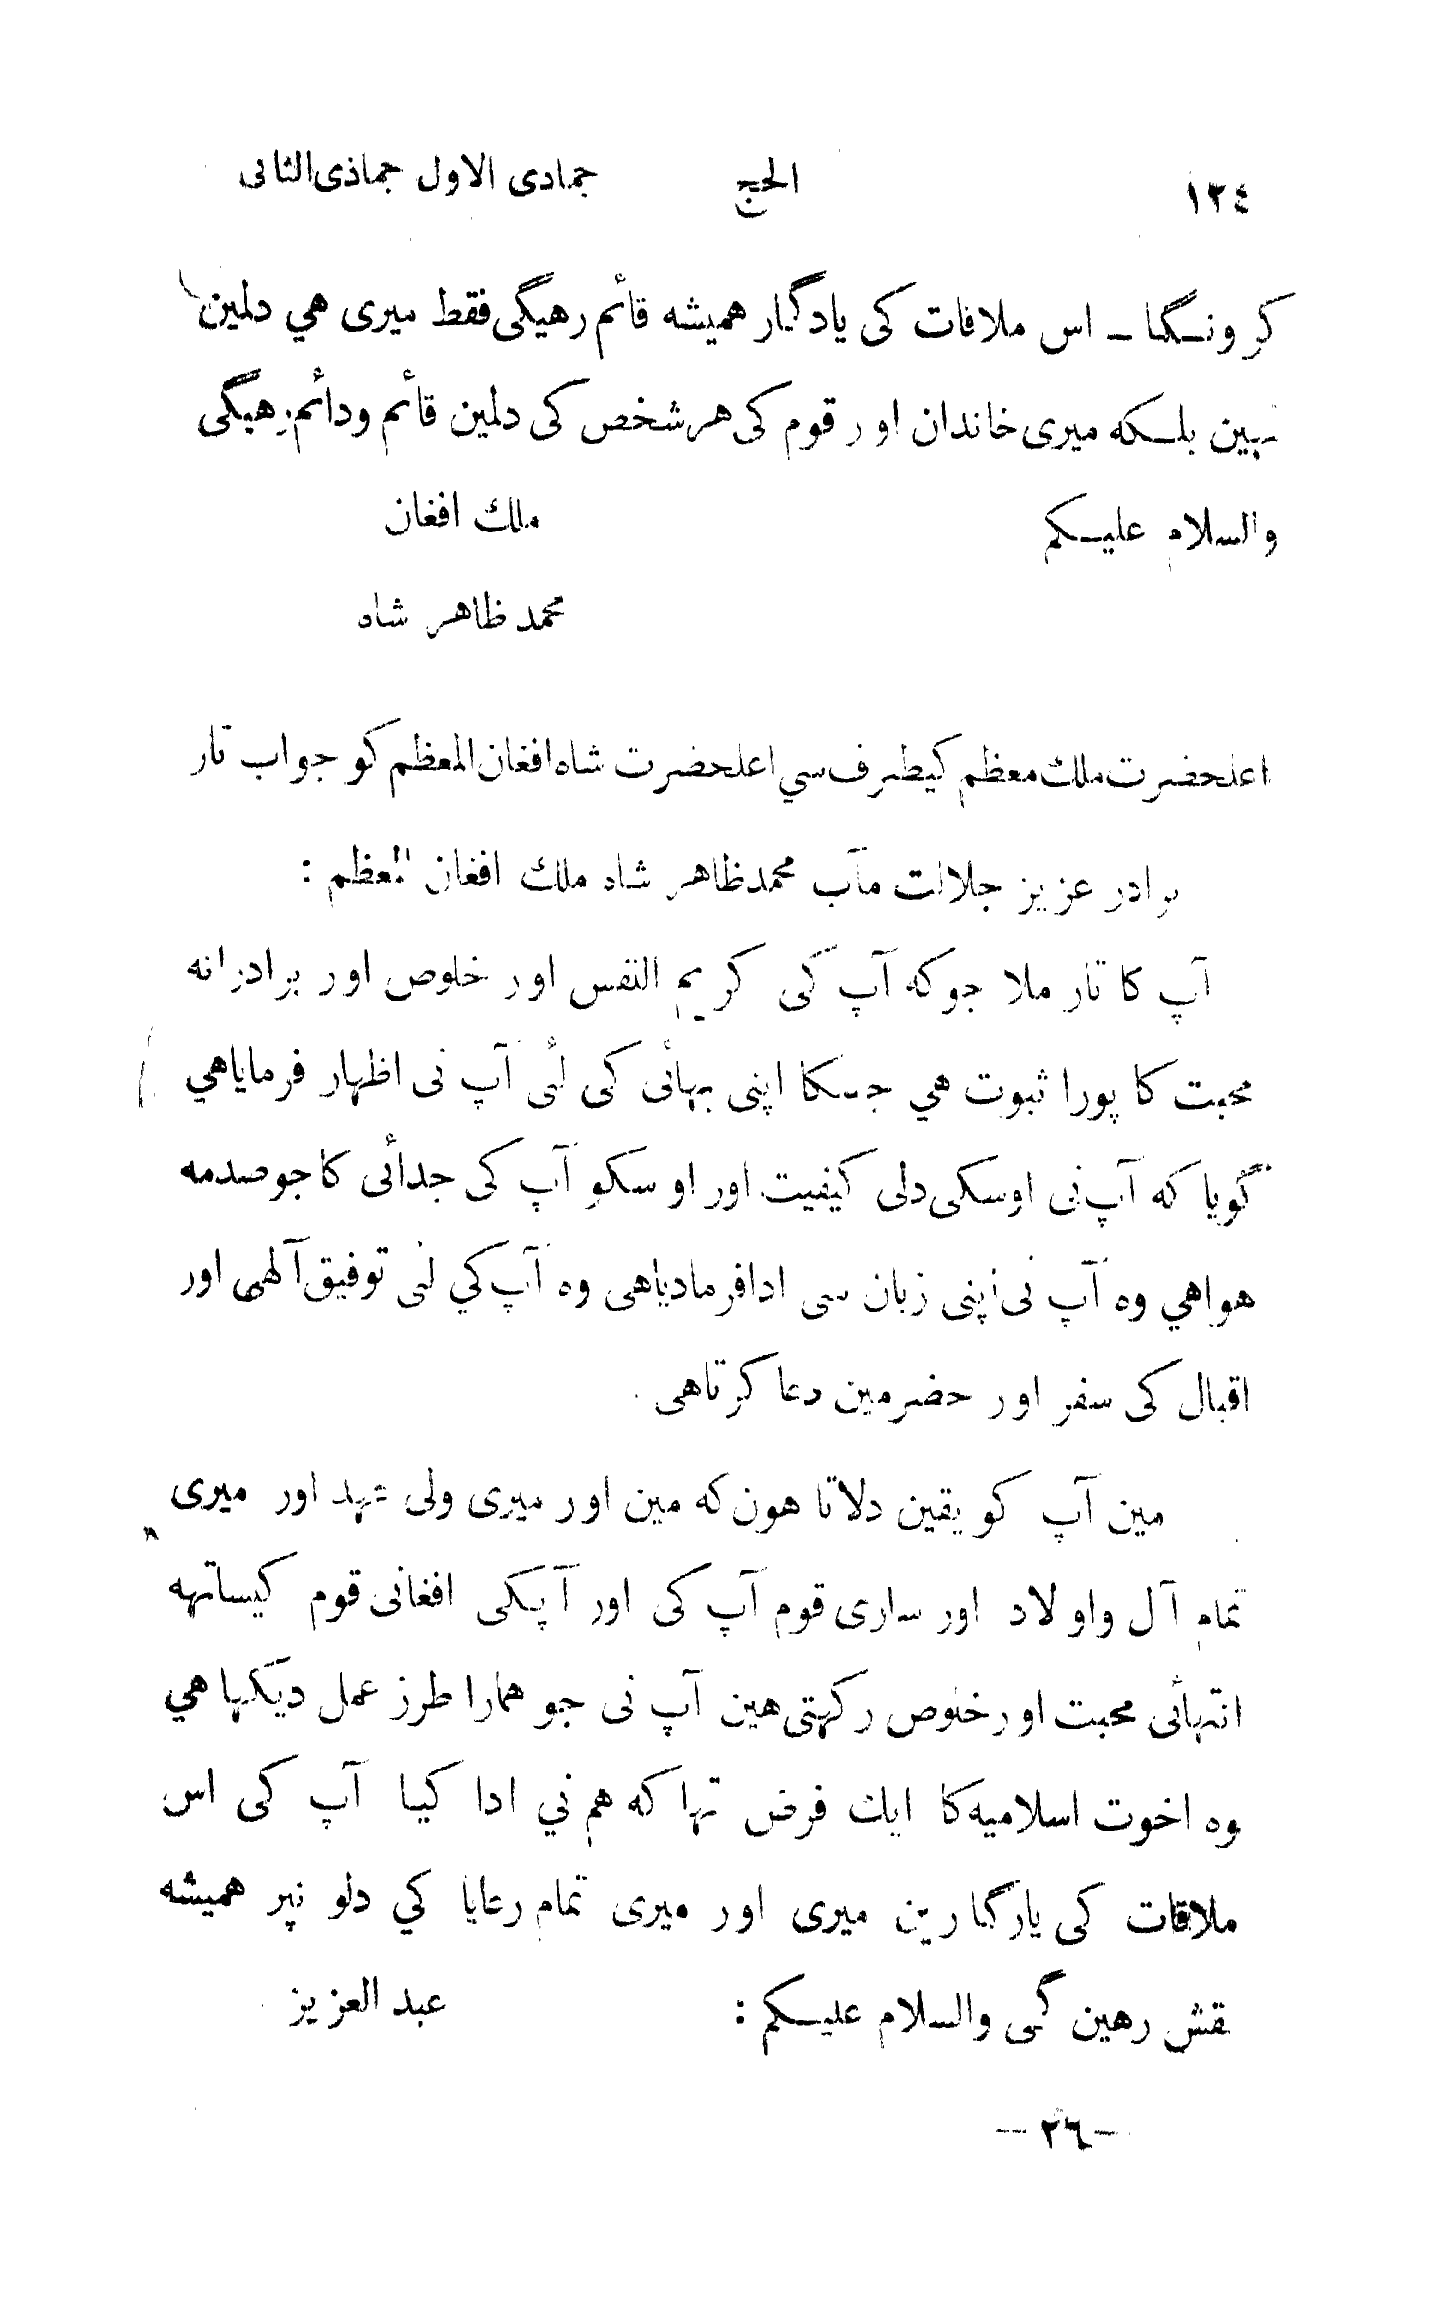 ١٣٤ الحج جمادى الاول جماذى الثانى
كرونگا ــ اس ملاقات كى يادگار هميشه قائم رهيگى فقط ميرى هي دلمين
نہين بلكه ميرى خاندان اور قوم كى هرشخص كى دلمين قائم ودائم رهيگى
والسلام عليكم ملك افغان
محمد ظاهر شاه
اعلحضرت ملك معظم كيطرف سي اعلحضرت شاه افغان المعظم كو جواب تار
برادر عزيز جلالت مآب محمد ظاهر شاه ملك افغان المعظم :
آپ كا تار ملا جوكه آپ كى كريم النفس اور خلوص اور برادرانه
محبت كا پورا ثبوت هي جسكا اپنى بهائى كى لئى آپ نى اظهار فرماياهي
گويا كه آپ نى اوسكى دلى كيفيت اور اوسكو آپ كى جدائى كا جو صدمه
هواهي وه آپ نى اپنى زبان سى ادا فرمادياهى وه آپ كي لئى توفيق آلهى اور
اقبال كى سفر اور حضرمين دعا كرتاهى
مين آپ كو يقين دلاتا هون كه مين اور ميرى ولى عهد اور ميرى
تمام آل واولاد اور سارى قوم آپ كى اور آپكى افغانى قوم كيساتهه
انتهائى محبت اور خلوص ركهتى هين آپ نى جو همارا طرز عمل ديكها هي
وه اخوت اسلاميه كا ايك فرض تها كه هم ني ادا كيا آپ كى اس
ملاقات كى يارگارين ميرى اور ميرى تمام رعايا كي دلو نپر هميشه
نقش رهين گى والسلام عليكم : عبد العزيز
–٢٦–